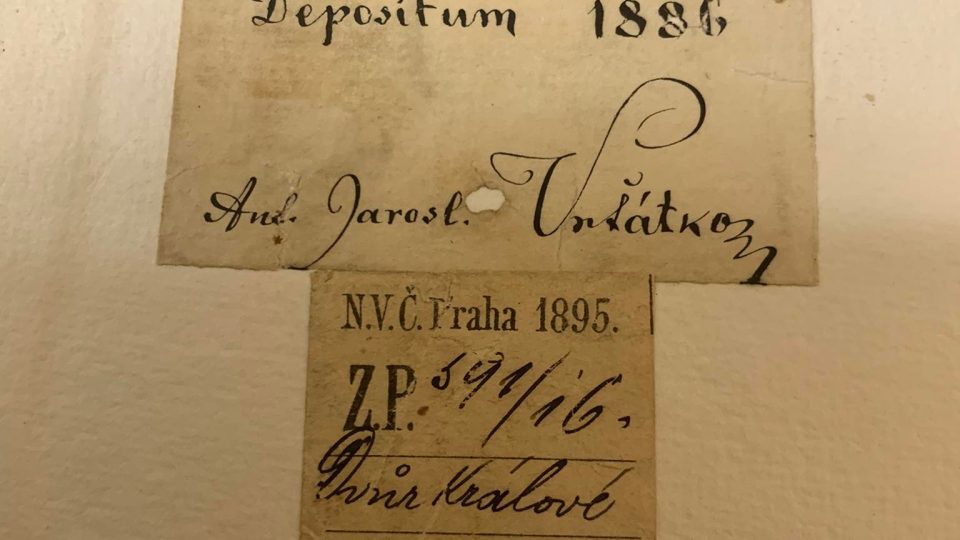 Depositum 1886
Ant. Jarosl. Vrťátko
N.V.Č. Praha 1895.
Z.P. 591/16.
Dvůr Králové